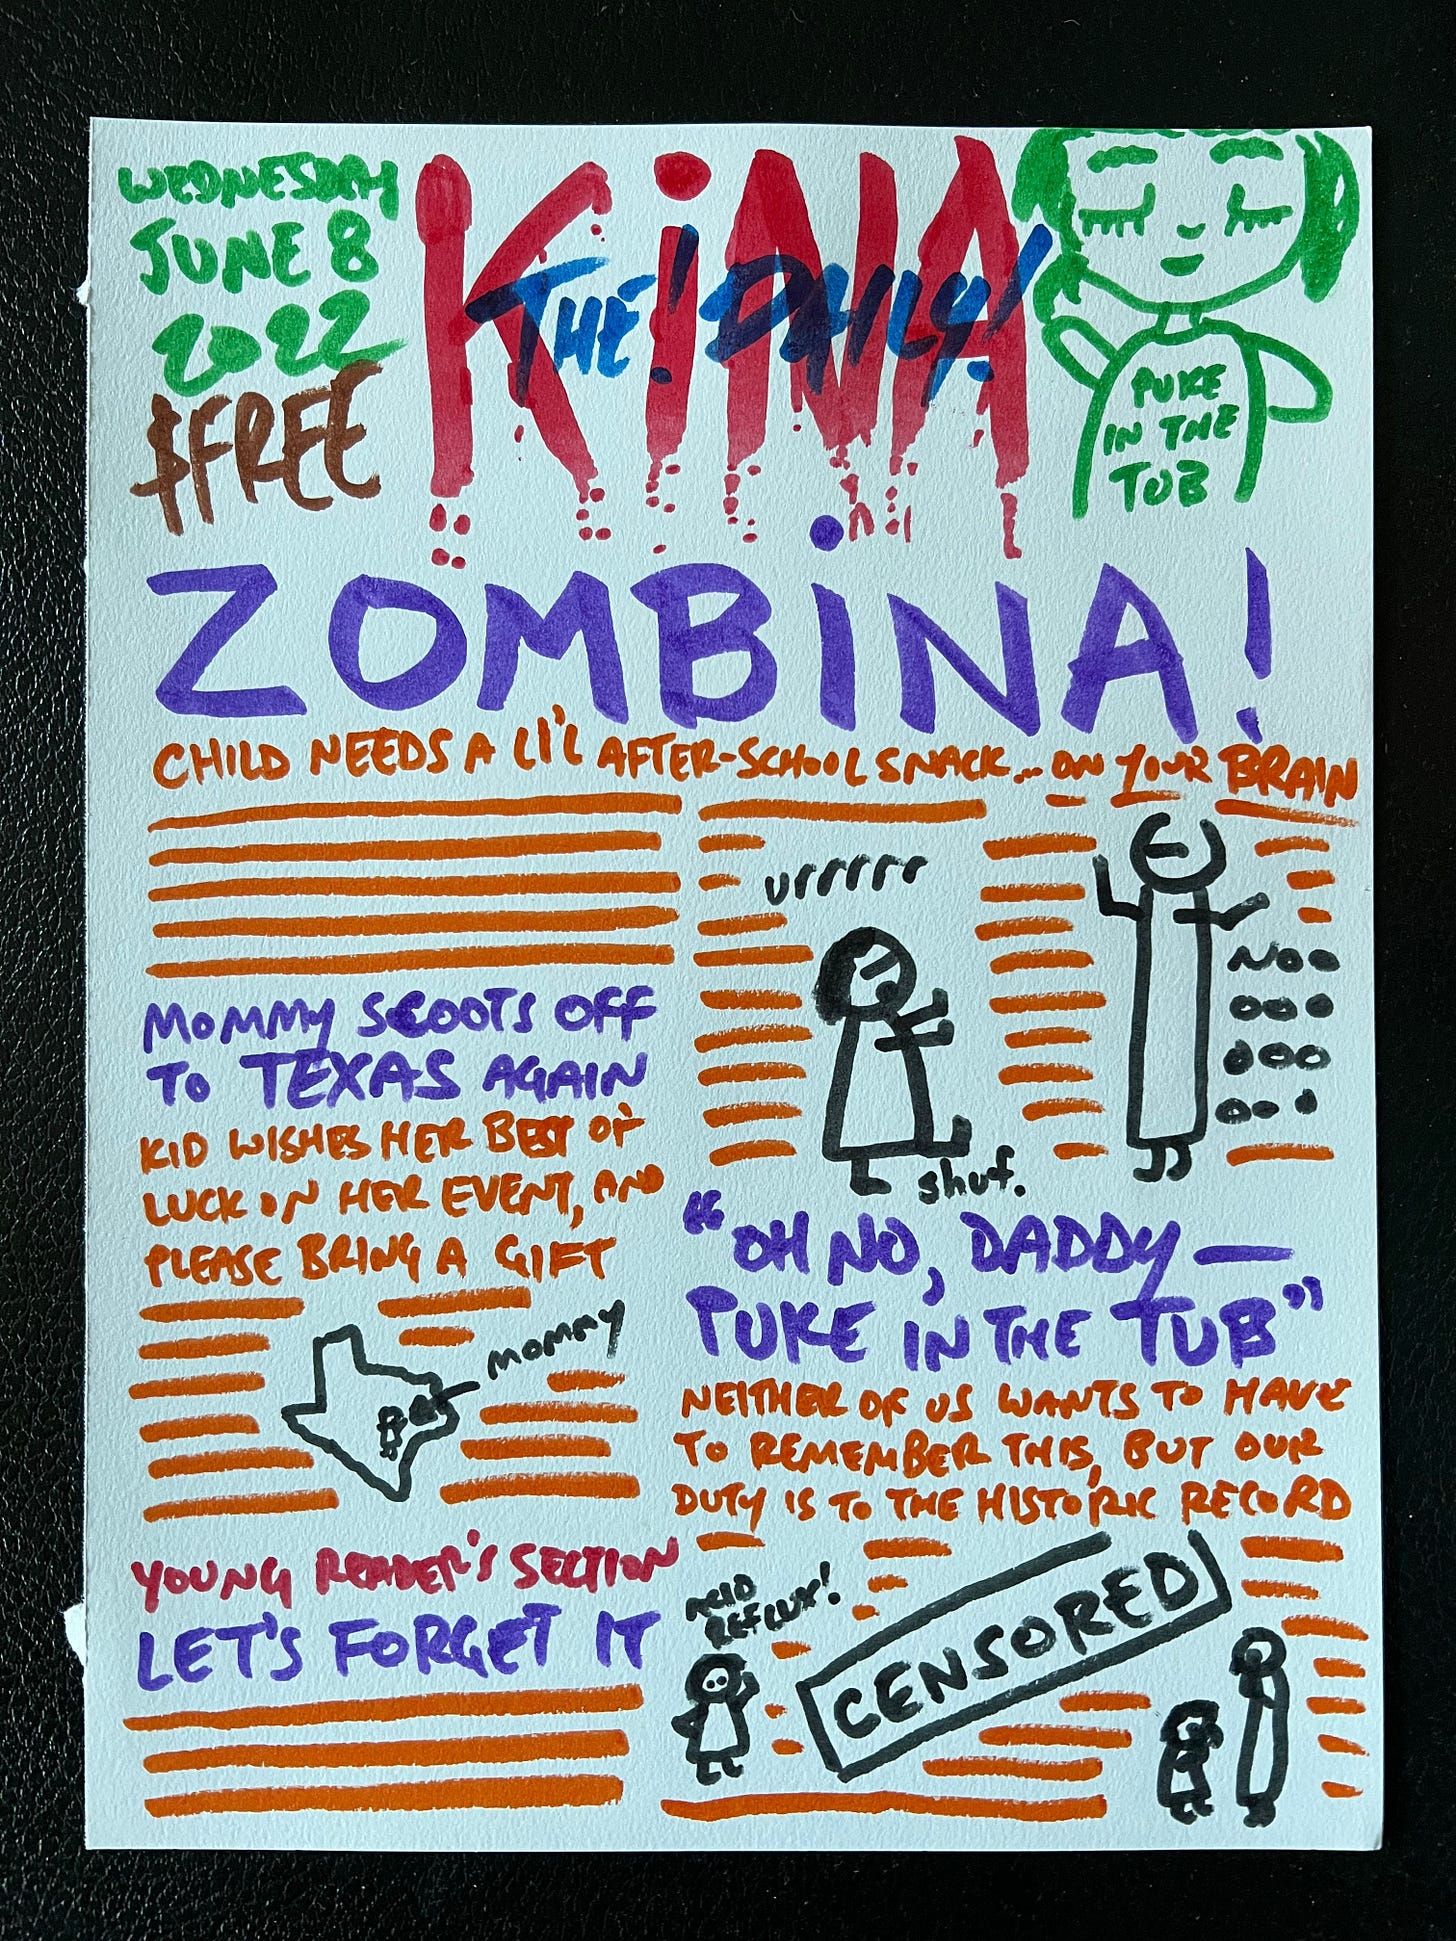 WEDNESDAY
JUNE 8
2022
$FREE
KiNA
THE! DAILY!
PUKE
IN THE
TUB
ZOMBiNA!
CHILD NEEDS A LI'L AFTER-SCHOOL SNACK... ON YOUR BRAIN
urrrrrr
NOOO
OOO
OOO
OO.
shuf.
MOMMY SCOOTS OFF
TO TEXAS AGAIN
KID WISHES HER BEST OF
LUCK ON HER EVENT, AND
PLEASE BRING A GIFT
MOMMY
YOUNG READER'S SECTION
LET'S FORGET IT
"OH NO, DADDY—
PUKE IN THE TUB"
NEITHER OF US WANTS TO HAVE
TO REMEMBER THIS, BUT OUR
DUTY IS TO THE HISTORIC RECORD
ACID
REFLUX!
CENSORED